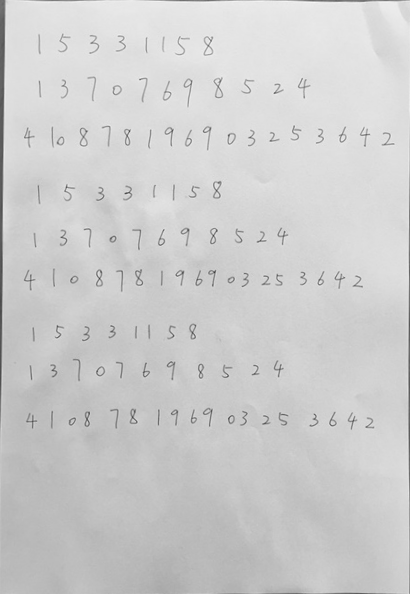 15331158
13707698524
410878196903253642
15331158
13707698524
410878196903253642
15331158
13707698524
410878196903253642